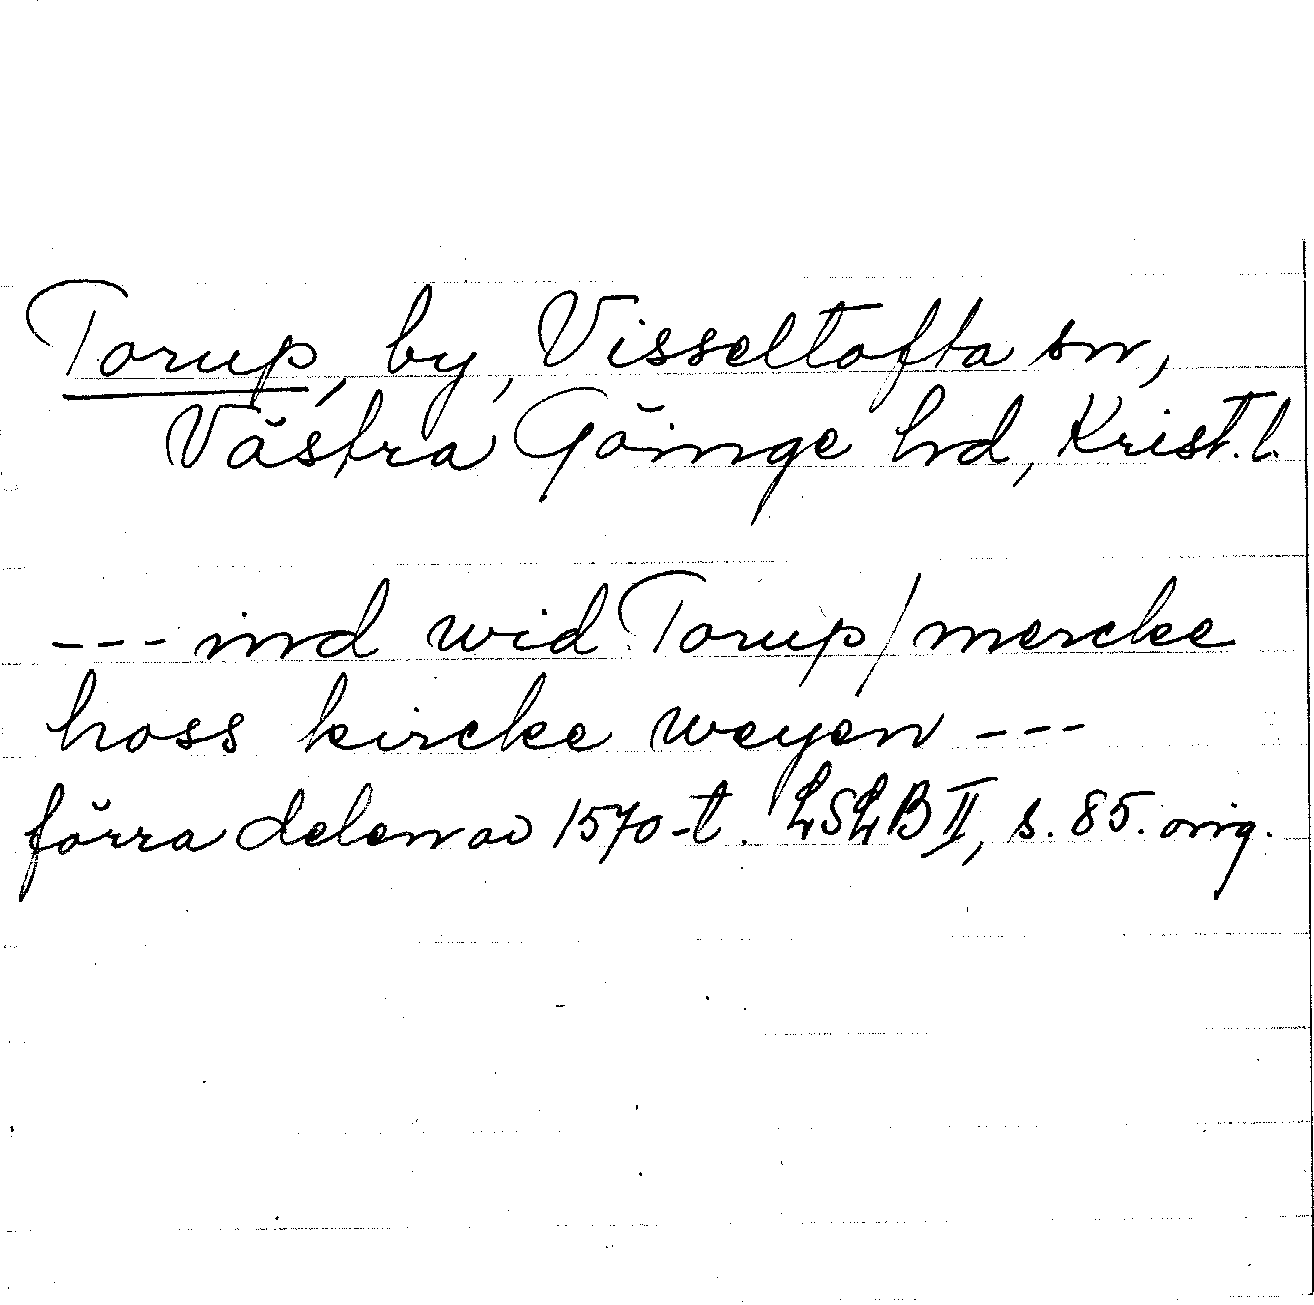 Torup, by, Visseltofta sn,
Västra Göinge hd, Krist. l.
--- ind wid Torup/mercke
hoss kircke weyen ---
förra delen av 1570-t. LSLB II, s. 85. orig.